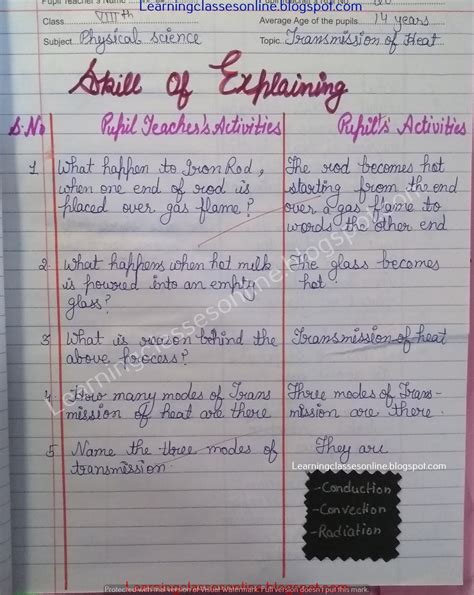 Learningclassesonline.blogspot.com
Class VIIIth Average Age of the pupils 14 years
Subject Physical science Topic Transmission of Heat
Skill Of Explaining
S.No Pupil Teacher's Activities Pupil's Activities
1. What happen to Iron Rod, The rod becomes hot
when one end of rod is starting from the end
placed over gas flame? over a gas flame to
words the other end
2. What happens when hot milk The glass becomes
is powred into an empty hot.
glass?
3 What is reason behind the Transmission of heat
above process?
4. How many modes of Trans Three modes of Trans-
mission of heat are there mission are there.
5. Name the three modes of They are
transmission.
Learningclassesonline.blogspot.com
-Conduction
-Convection
-Radiation
Learningclassesonline.blogspot.com
Learningclassesonline.blogspot.com
Protected with trial version of Visual Watermark. Full version doesn't put this mark.